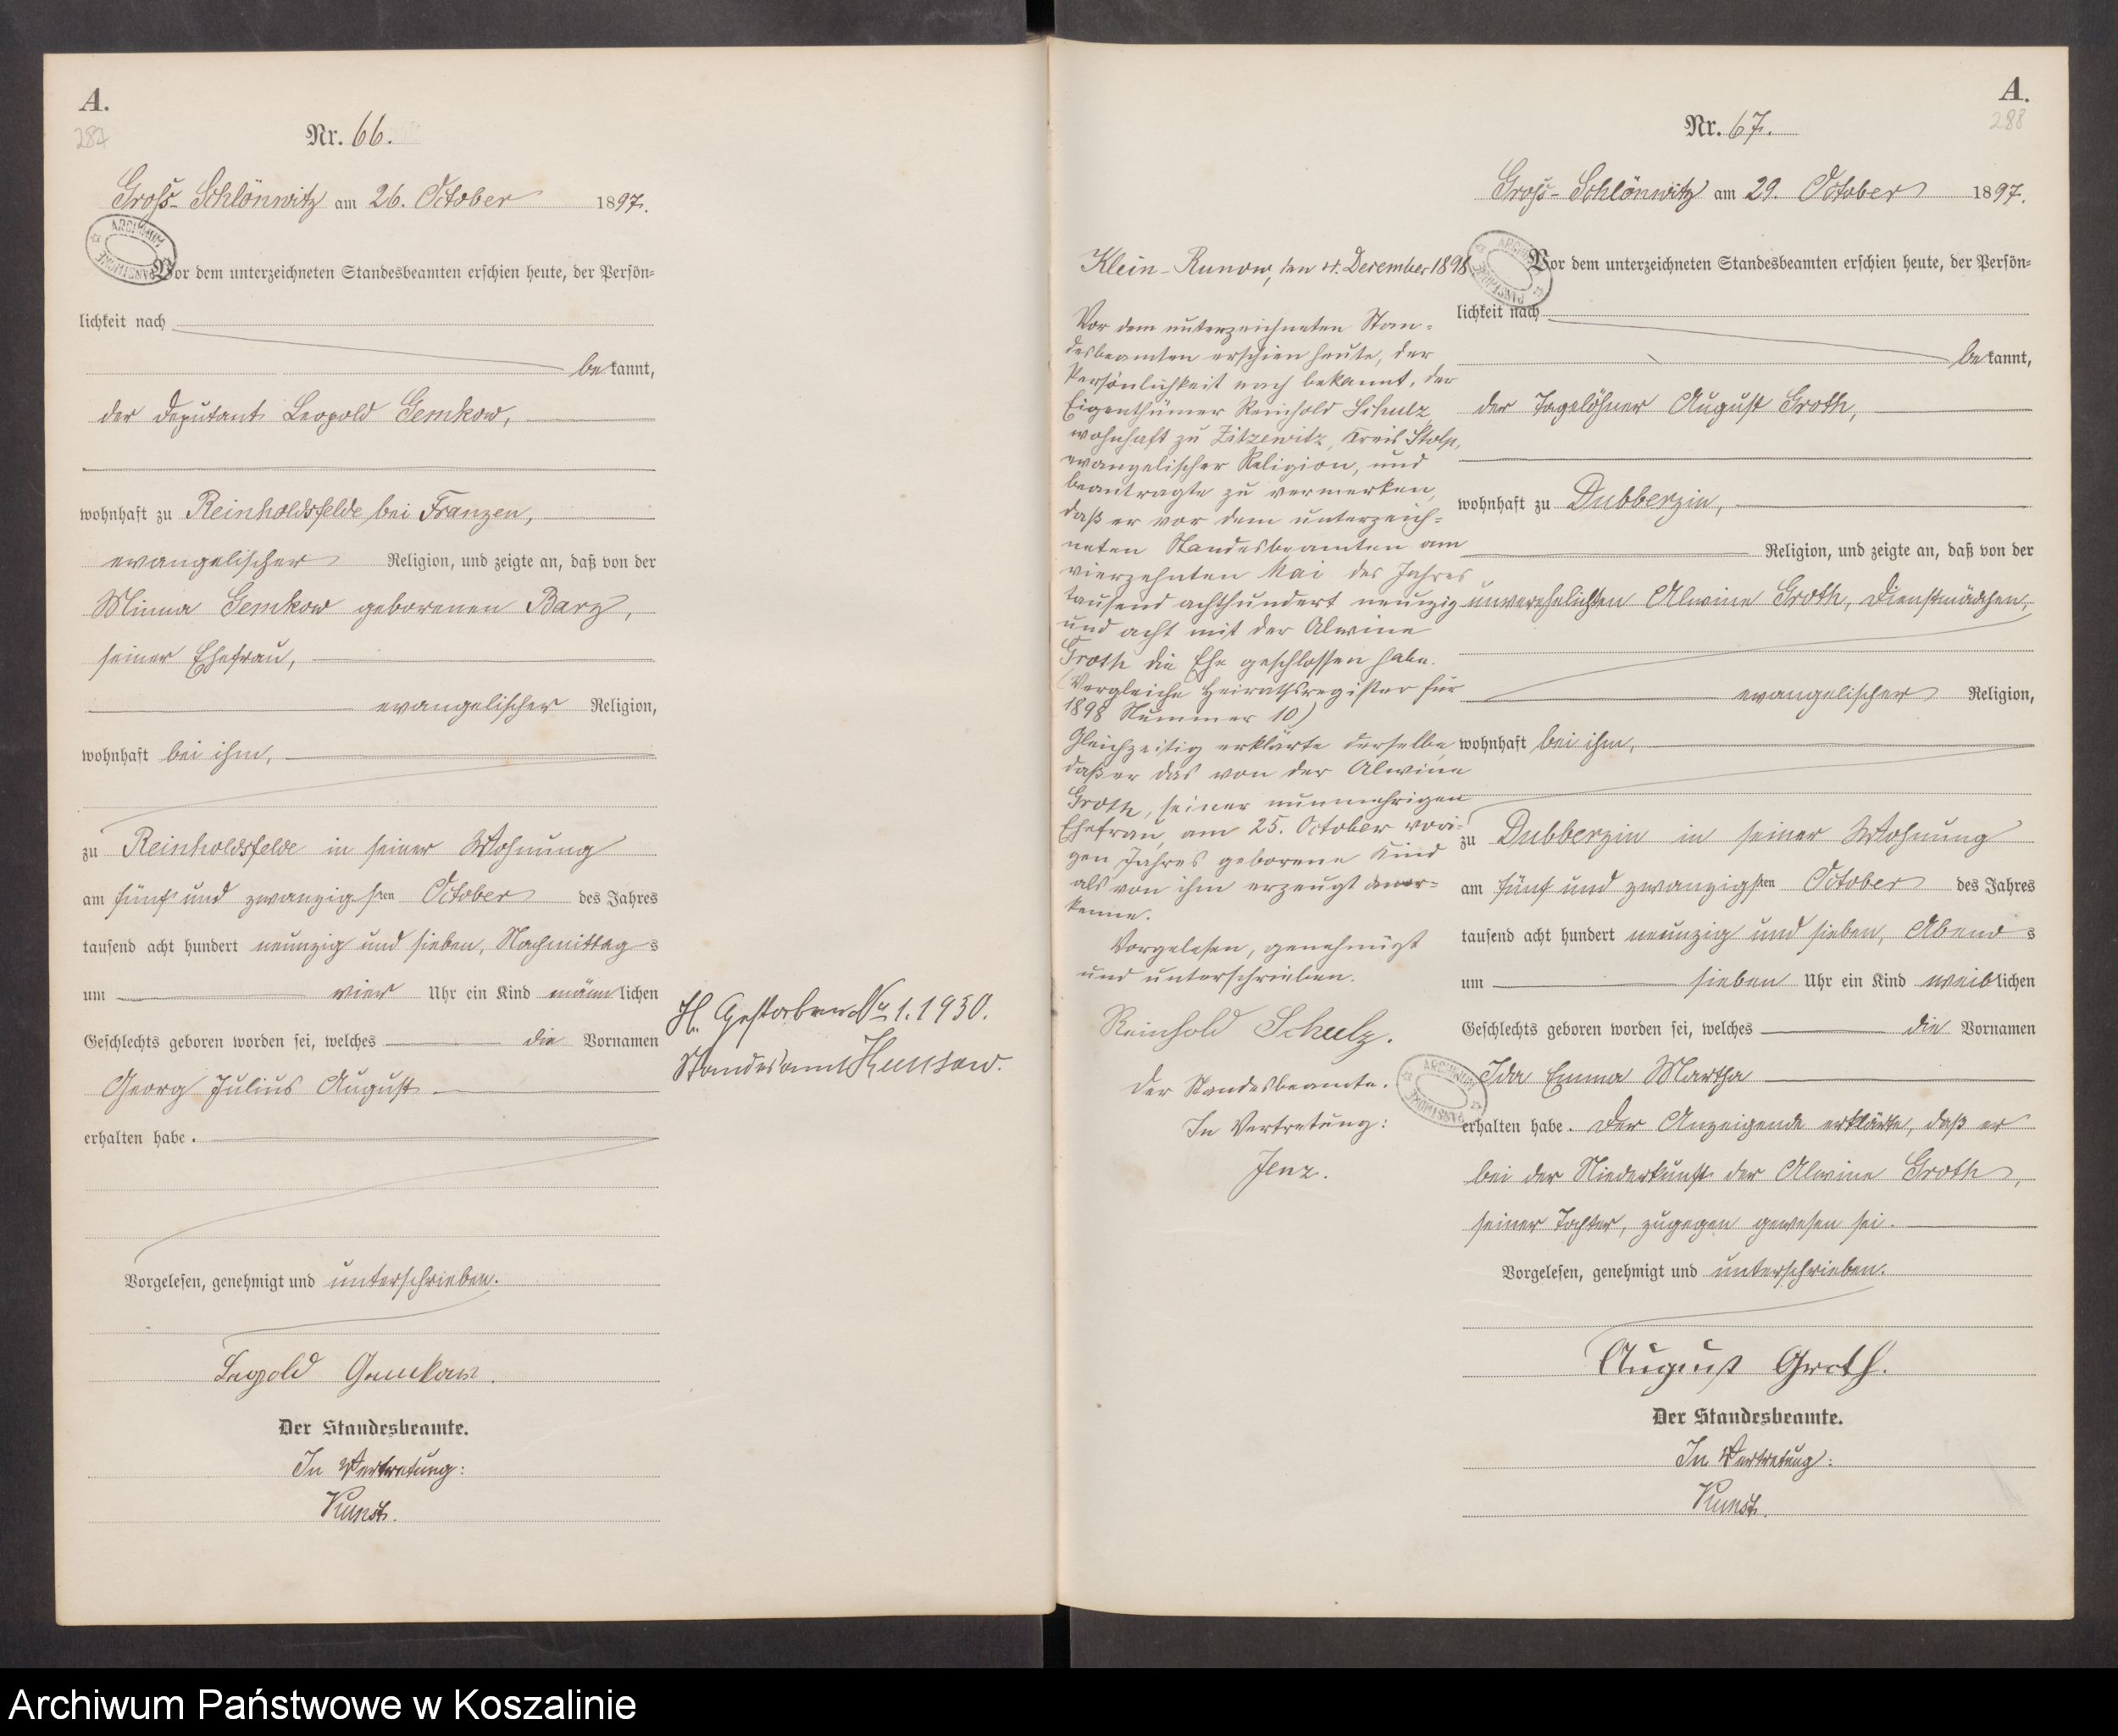 A.
287
Nr. 66.
Groß-Schlönwitz am 26. October 1897.
ARCHIWUM PAŃSTWOWE
Vor dem unterzeichneten Standesbeamten erschien heute, der Persön=
lichkeit nach
bekannt,
der Deputant Leopold Gemkow,
wohnhaft zu Reinholdsfelde bei Franzen,
evangelischer Religion, und zeigte an, daß von der
Minna Gemkow geborenen Barz,
seiner Ehefrau,
evangelischer Religion,
wohnhaft bei ihm,
zu Reinholdsfelde in seiner Wohnung
am fünf und zwanzigsten October des Jahres
tausend acht hundert neunzig und sieben, Nachmittags
um vier Uhr ein Kind männlichen
Geschlechts geboren worden sei, welches die Vornamen
Georg Julius August
erhalten habe.
Vorgelesen, genehmigt und unterschrieben.
Leopold Gemkow.
Der Standesbeamte.
In Vertretung:
Kunst.
H. Gestorben No 1. 1950.
Standesamt
Klein-Runow, den 4. Dezember 1898
Vor dem unterzeichneten Stan=
desbeamten erschien heute, der
Persönlichkeit nach bekannt, der
Eigenthümer Reinhold Schulz
wohnhaft zu Zitzewitz, Kreis Stolp,
evangelischer Religion, und
beantragte zu vermerken,
daß er vor dem unterzeich=
neten Standesbeamten am
vierzehnten Mai des Jahres
tausend achthundert neunzig
und acht mit der Alwine
Groth die Ehe geschlossen habe.
(Vergleiche Heirathsregister für
1898 Nummer 10)
Gleichzeitig erklärte derselbe,
daß er das von der Alwine
Groth, seiner nunmehrigen
Ehefrau, am 25. October vori=
gen Jahres geborene Kind
als von ihm erzeugt aner=
kenne.
Vorgelesen, genehmigt
und unterschrieben.
Reinhold Schulz.
Der Standesbeamte.
In Vertretung:
Jenz.
ARCHIWUM PAŃSTWOWE
A.
288
Nr. 67.
Groß-Schlönwitz am 29. October 1897.
ARCHIWUM PAŃSTWOWE
Vor dem unterzeichneten Standesbeamten erschien heute, der Persön=
lichkeit nach
bekannt,
der Tagelöhner August Groth,
wohnhaft zu Dubberzin,
Religion, und zeigte an, daß von der
unverehelichten Alwine Groth, Dienstmädchen,
evangelischer Religion,
wohnhaft bei ihm,
zu Dubberzin in seiner Wohnung
am fünf und zwanzigsten October des Jahres
tausend acht hundert neunzig und sieben, Abends
um sieben Uhr ein Kind weiblichen
Geschlechts geboren worden sei, welches die Vornamen
Ida Emma Martha
erhalten habe. Der Anzeigende erklärte, daß er
bei der Niederkunft der Alwine Groth,
seiner Tochter, zugegen gewesen sei.
Vorgelesen, genehmigt und unterschrieben.
August Groth.
Der Standesbeamte.
In Vertretung:
Kunst.
Archiwum Państwowe w Koszalinie